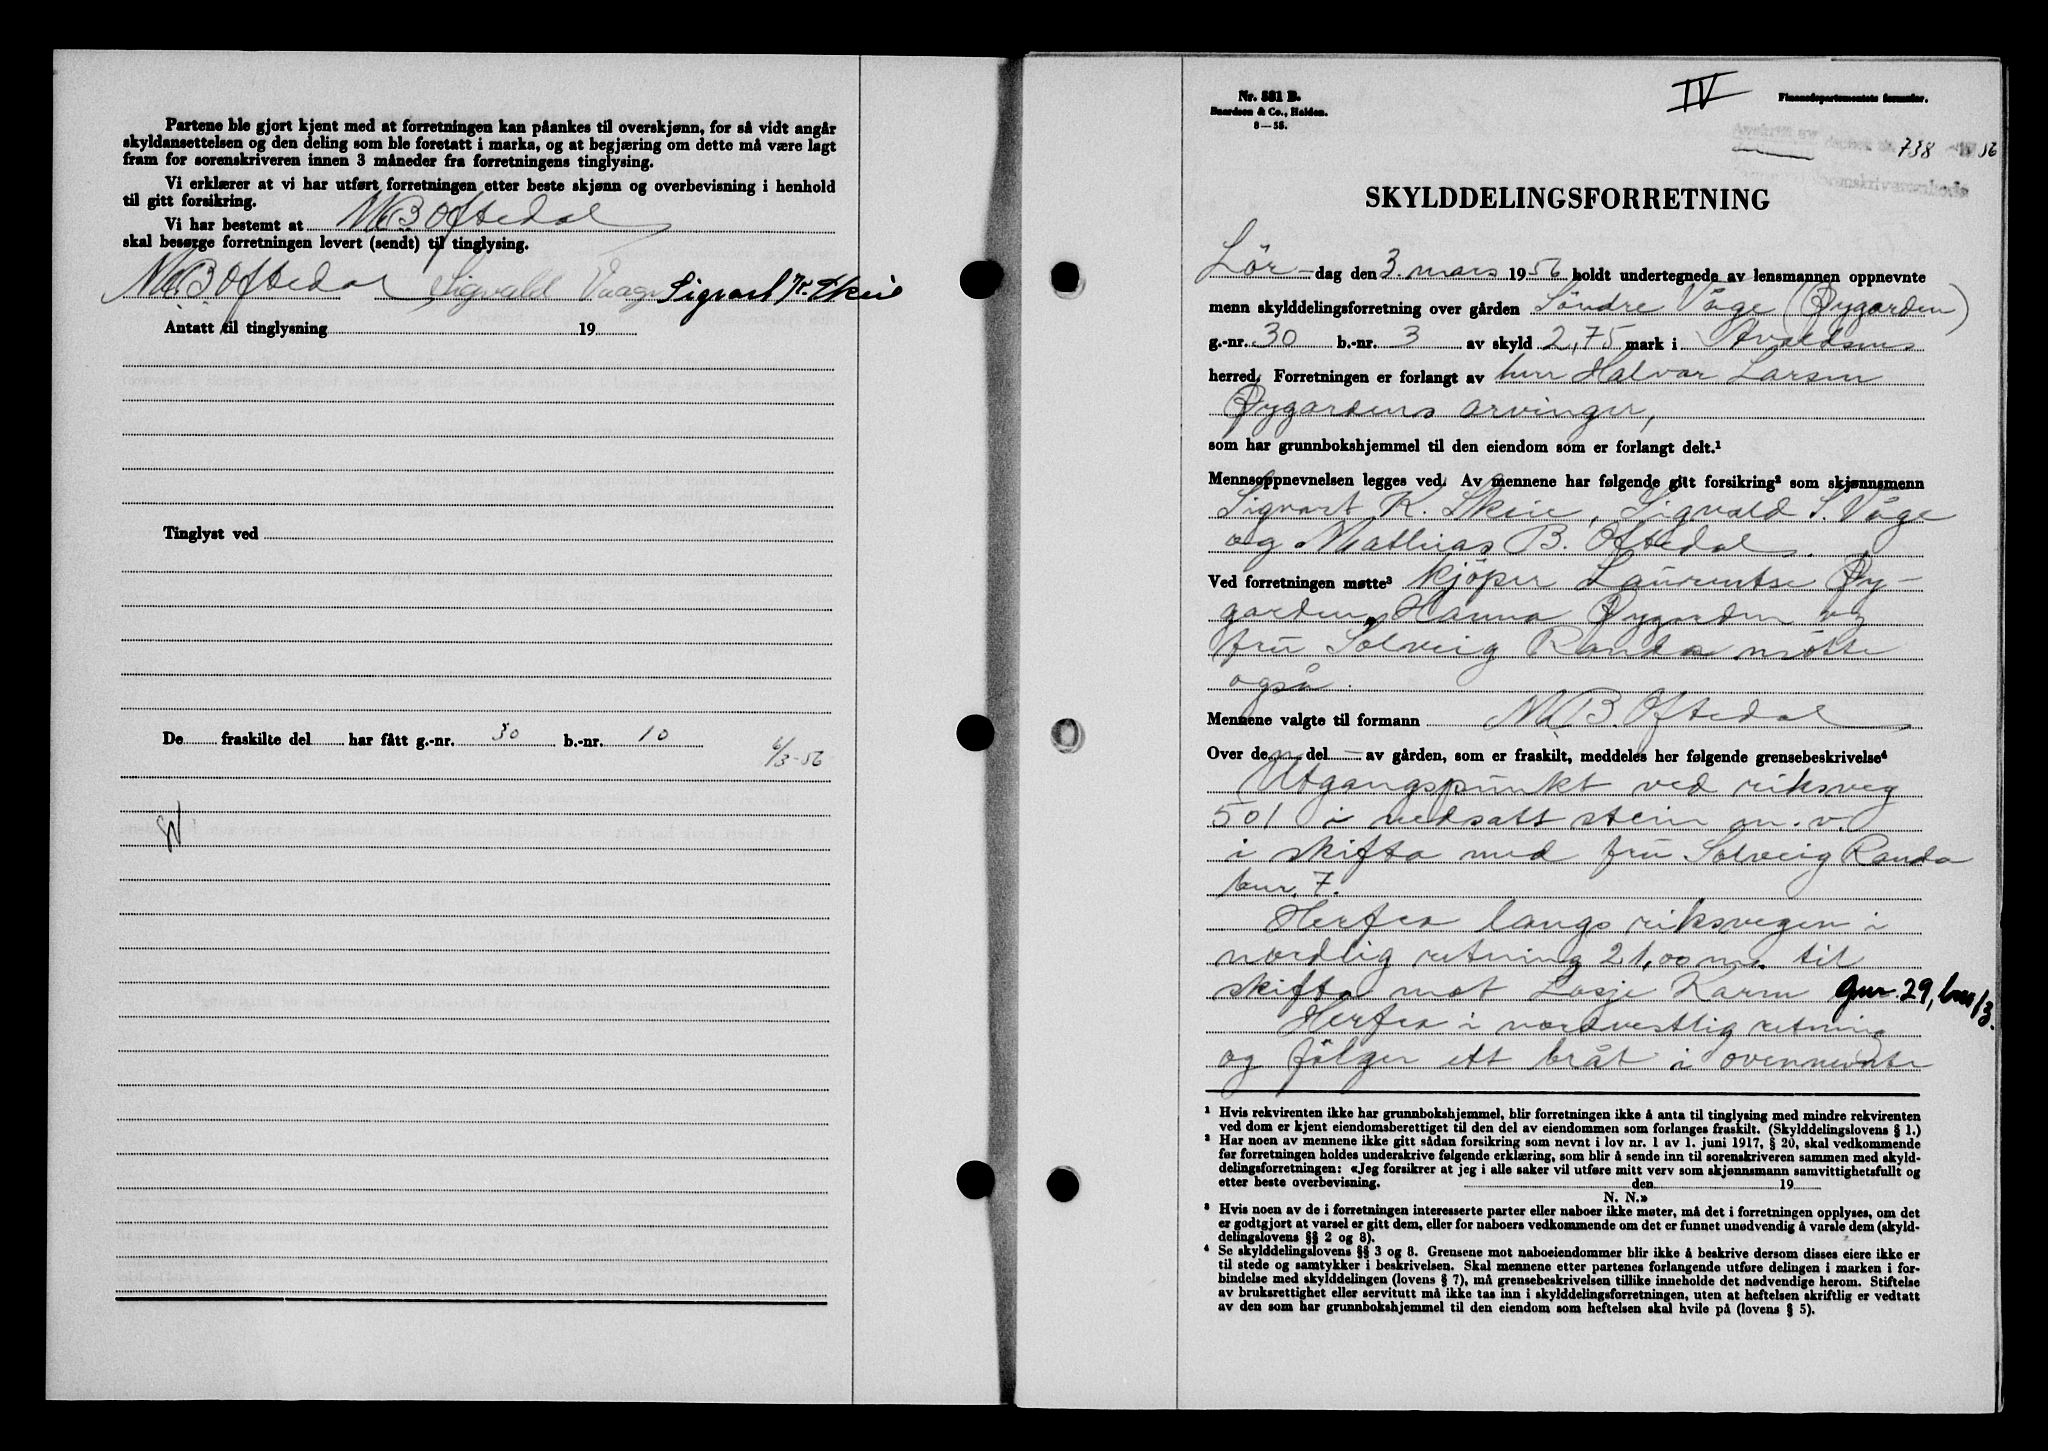 Partene ble gjort kjent med at forretningen kan påankes til overskjønn, for så vidt angår
skyldansettelsen og den deling som ble foretatt i marka, og at begjæring om dette må være lagt
fram for sorenskriveren innen 3 måneder fra forretningens tinglysing.
Vi erklærer at vi har utført forretningen etter beste skjønn og overbevisning i henhold
til gitt forsikring.
Vi har bestemt at M B Oftedal
skal besørge forretningen levert (sendt) til tinglysing.
M B Oftedal Sigvald Vaage Sigvart K. Skeie
Antatt til tinglysning 19
Tinglyst ved
De fraskilte del har fått g.-nr. 30 b.-nr. 10
6/3-56
Nr. 581 B.
Baardsen & Co., Halden.
8—55.
IV
Finansdepartementets formular.
Avskrift av
738 56
sorenskriverembede
SKYLDDELINGSFORRETNING
Lör-dag den 3. mars 1956 holdt undertegnede av lensmannen oppnevnte
menn skylddelingsforretning over gården Söndre Våge (Øygarden)
g.-nr. 30 b.-nr. 3 av skyld 2,75 mark i Avaldsnes
herred. Forretningen er forlangt av herr Halvor Larsen
Øygardens arvinger,
som har grunnbokshjemmel til den eiendom som er forlangt delt.¹
Mennsoppnevnelsen legges ved. Av mennene har følgende gitt forsikring² som skjønnsmenn
Sigvart K. Skeie, Sigvald S. Våge
og Mathias B. Oftedal.
Ved forretningen møtte³ kjöper Laurentse Øy-
garden, Hanna Øygarden og
fru Solveig Randa møtte
også.
Mennene valgte til formann M. B. Oftedal
Over den del — av gården, som er fraskilt, meddeles her følgende grensebeskrivelse⁴
Utgangspunkt ved riksveg
501 i nedsatt stein m. v.
i skifta med fru Solveig Randa
bnr. 7.
Herfra langs riksvegen i
nordlig retning 21,00 m. til
skifta mot Losje Karm gnr. 29, bnr 13.
Herfra i nordvestlig retning
og fölger ett bråt i ovennevnte
¹ Hvis rekvirenten ikke har grunnbokshjemmel, blir forretningen ikke å anta til tinglysing med mindre rekvirenten
ved dom er kjent eiendomsberettiget til den del av eiendommen som forlanges fraskilt. (Skylddelingslovens § 1.)
² Har noen av mennene ikke gitt sådan forsikring som nevnt i lov nr. 1 av 1. juni 1917, § 20, skal vedkommende
før forretningen holdes underskrive følgende erklæring, som blir å sende inn til sorenskriveren sammen med skyld-
delingsforretningen: «Jeg forsikrer at jeg i alle saker vil utføre mitt verv som skjønnsmann samvittighetsfullt og
etter beste overbevisning. den 19
N. N.»
³ Hvis noen av de i forretningen interesserte parter eller naboer ikke møter, må det i forretningen opplyses, om det
er godtgjort at varsel er gitt dem, eller for naboers vedkommende om det er funnet unødvendig å varsle dem (skyld-
delingslovens §§ 2 og 8).
⁴ Se skylddelingslovens §§ 3 og 8. Grensene mot naboeiendommer blir ikke å beskrive dersom disses eiere ikke er
til stede og samtykker i beskrivelsen. Skal mennene etter partenes forlangende utføre delingen i marken i for-
bindelse med skylddelingen (lovens § 7), må grensebeskrivelsen tillike inneholde det nødvendige herom. Stiftelse
av bruksrettighet eller servitutt må ikke tas inn i skylddelingsforretningen, uten at heftelsen skriftlig er vedtatt
av den som har grunnbokshjemmel til den eiendom som heftelsen skal hvile på (lovens § 5).